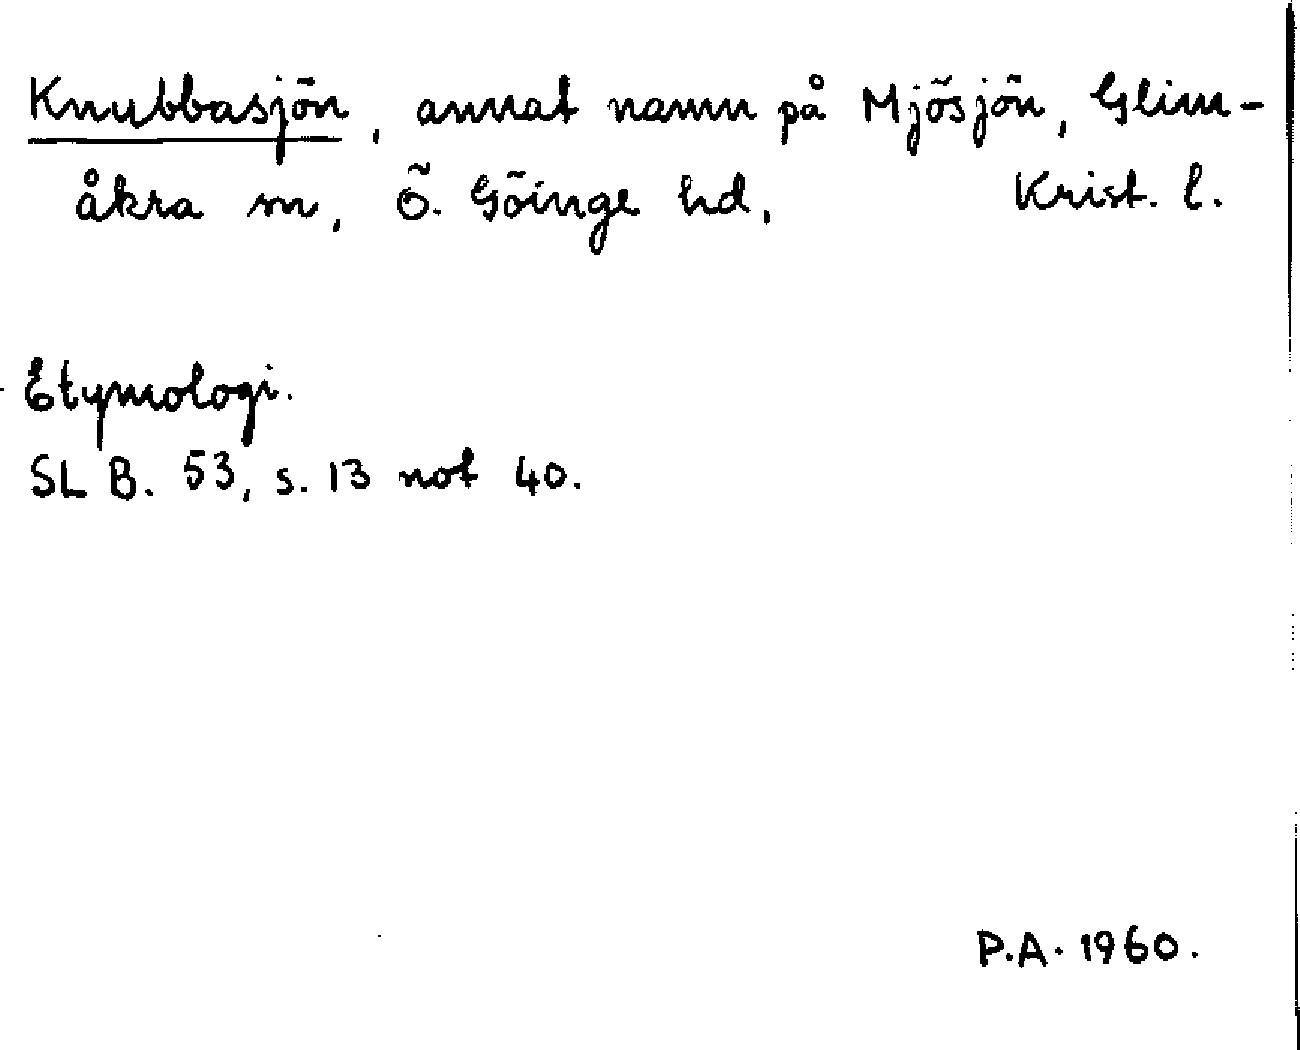 Knubbasjön, annat namn på Mjösjön, Glim-
åkra sn, Ö. Göinge hd, Krist. l.
Etymologi.
SL B. 53, s. 13 not 40.
P.A. 1960.